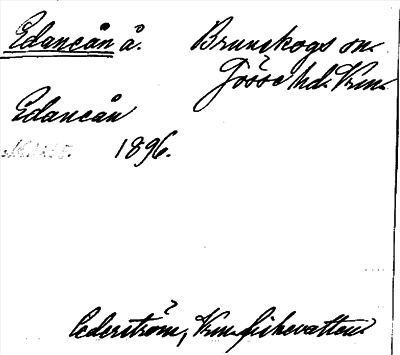 Edancån å. Brunskogs sn.
Jösse hd. Vrm.
Edancån
1896.
Cederström, Vrm. fiskevatten